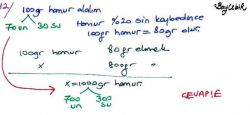 12/ 100gr hamur alalım
70un 30su
Hamur %20 sini kaybedence
100gr hamur = 80gr olur.
100gr hamur 80gr ekmek
x 800gr "
x = 1000gr hamur.
700 un 300 su
CEVAP:E